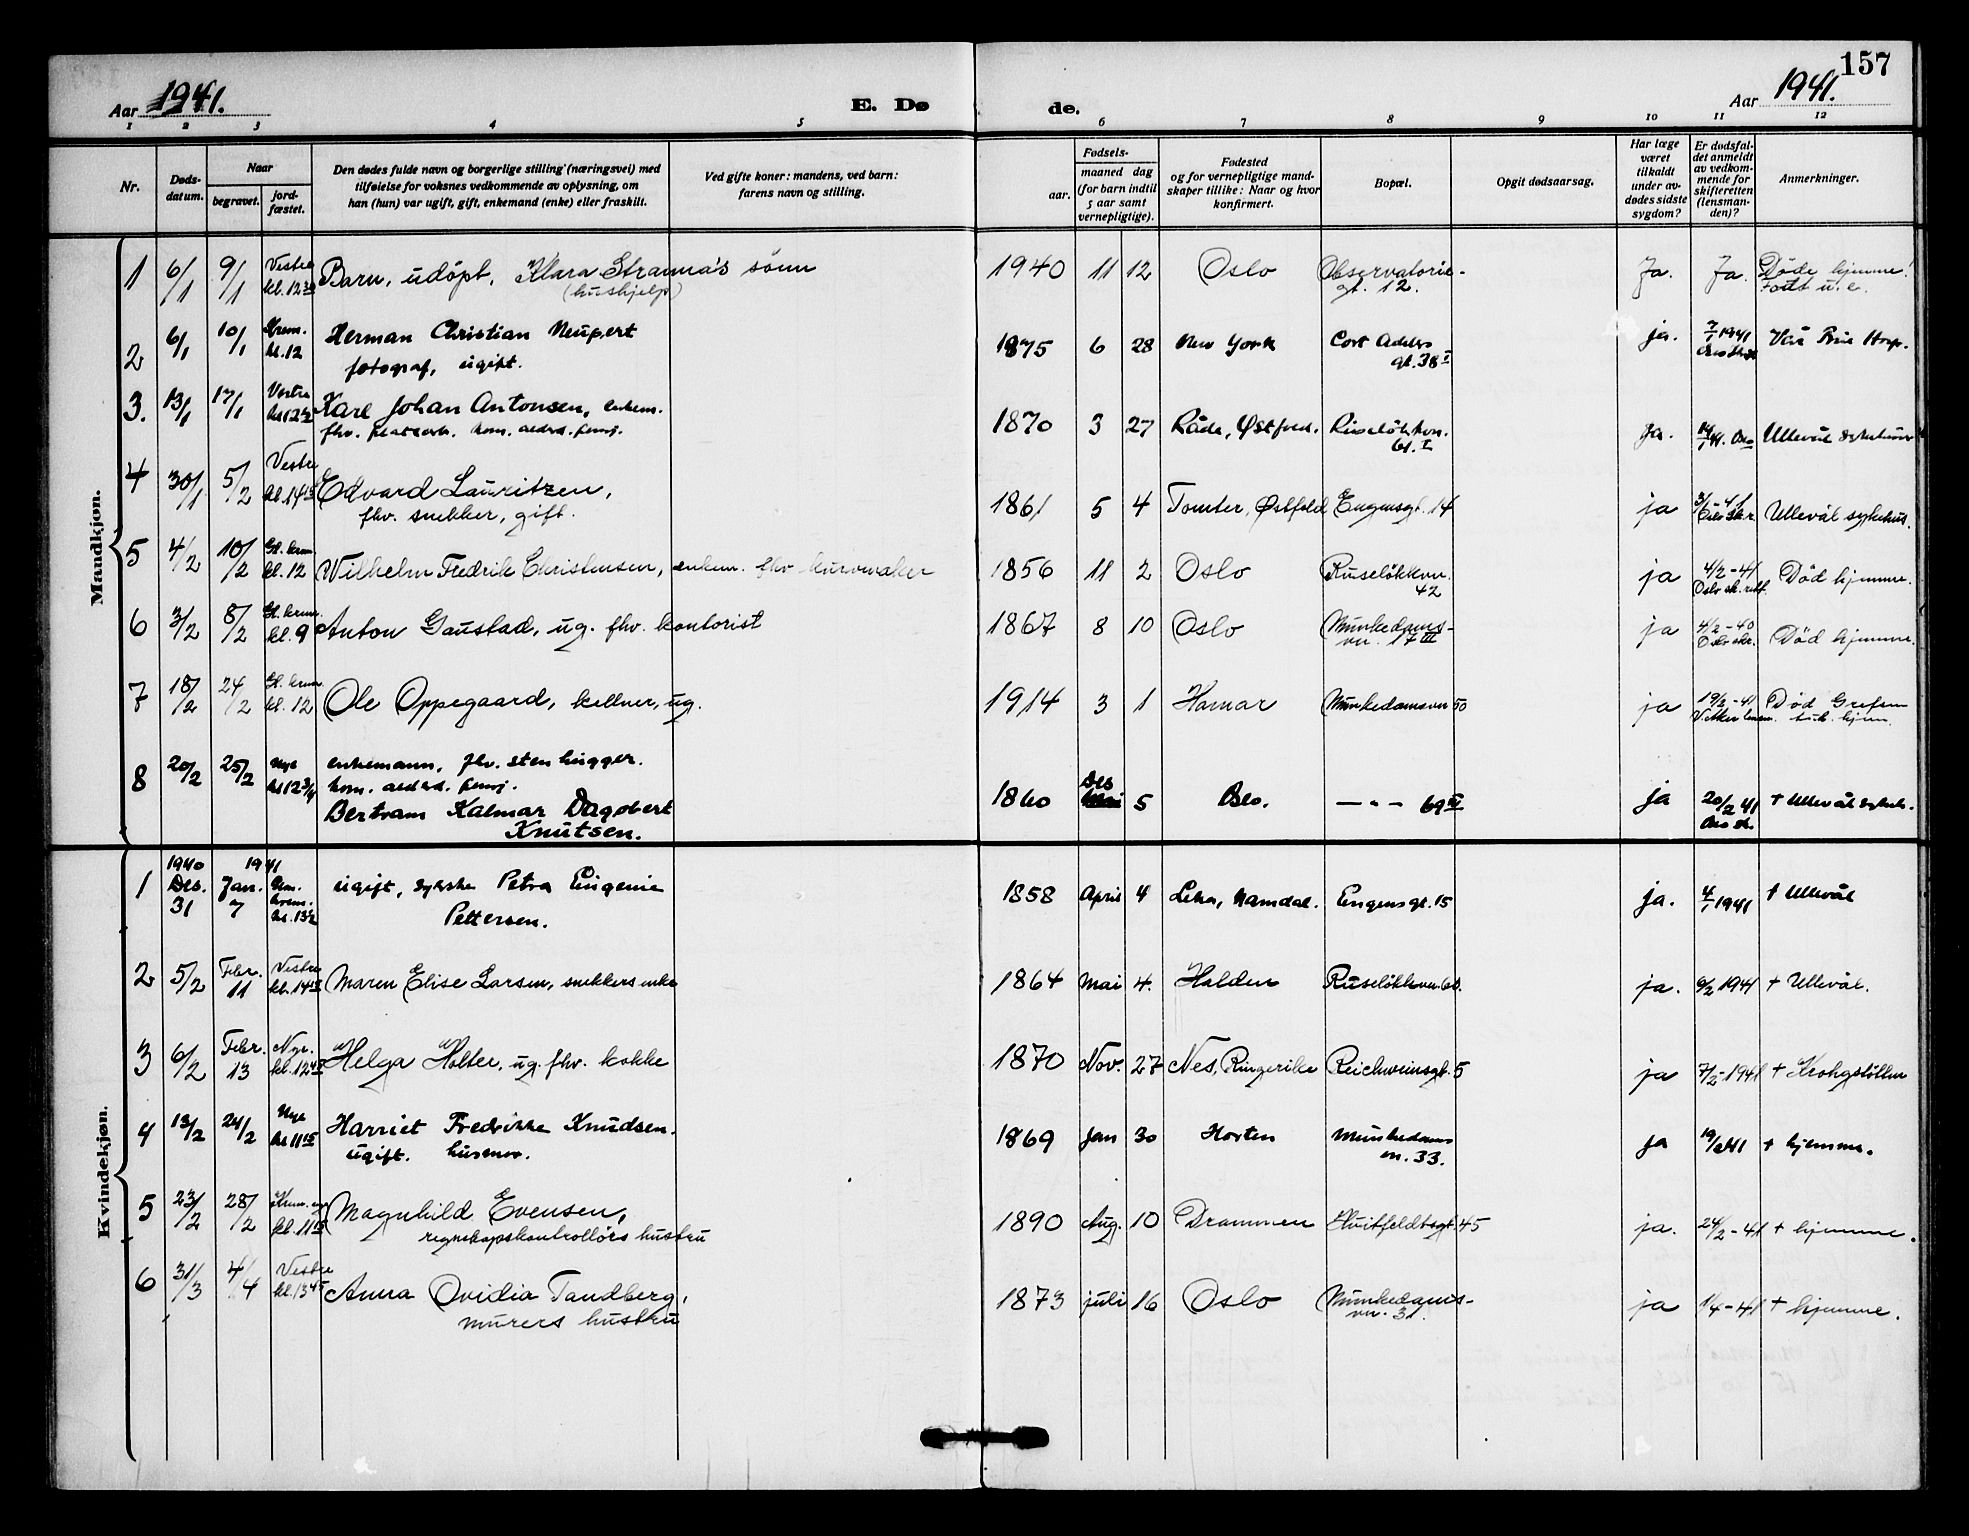 157
Aar 1941.
E. Dø
de.
Aar 1941.
1 2 3 4 5 6 7 8 9 10 11 12
Nr.
Døds-
datum.
Naar
begravet.
jord-
fæstet.
Den dødes fulde navn og borgerlige stilling (næringsvei) med
tilføielse for voksnes vedkommende av oplysning, om
han (hun) var ugift, gift, enkemand (enke) eller fraskilt.
Ved gifte koner: mandens, ved barn:
farens navn og stilling.
Fødsels-
aar.
maaned dag
(for barn indtil
5 aar samt
vernepligtige).
Fødested
og for vernepligtige mand-
skaper tillike: Naar og hvor
konfirmert.
Bopæl.
Opgit dødsaarsag.
Har læge
været
tilkaldt
under av-
dødes sidste
sygdom?
Er dødsfal-
det anmeldt
av vedkom-
mende for
skifteretten
(lensman-
den)?
Anmerkninger.
Mandkjøn.
1 6/1 9/1 Vestre Barn, udöpt, Klara Stranna's sönn 1940 11 12 Oslo Observatorie- Ja. Ja. Döde hjemme!
kl. 12 30 (hushjelp) gt. 12. Födt u. e.
2 6/1 10/1 Krem. Herman Christian Neupert 1875 6 28 New York Cort Adelers ja. 7/1 1941
kl. 12 fotograf, ugift. gt. 38 I
3. 13/1 17/1 Vestre Karl Johan Antonsen, enkem. 1870 3 27 Råde, Østfold. Ruseløkvn. Ja. Ullevål sykehus
fhv. kom. aldrd. pensj. 61. I
4 30/1 5/2 Vestre Edvard Lauritzen, 1861 5 4 Tomter, Østfold Engensgt. 14 ja Ullevål sykehus.
kl. 14 15 fhv. snekker, gift. Oslo skr.
5 4/2 10/2 Gl. krem. Wilhelm Fredrik Christensen, enkem. fhv. kurvmaker 1856 11 2 Oslo Ruseløkkvn. ja 4/2 - 41 Död hjemme.
kl. 12 42 Oslo sk. rett.
6 3/2 8/2 Gl. krem. Anton Gaustad, ug. fhv. kontorist 1867 8 10 Oslo Munkedams- ja 4/2 - 40 Död hjemme.
kl. 9 vn. 17 III Oslo skr.
7 18/2 24/2 Gl. krem. Ole Oppegaard, kellner, ug. 1914 3 1 Hamar Munkedamsvn 50 ja 19/2 - 41 Död Grefsen
kl. 12 V. Aker lensm. tub. hjem.
8 20/2 25/2 Nye enkemann, fhv. stenhugger. 1860 Des 5 Oslo. — " — 69 IV ja 20/2 41 + Ullevål sykeh.
kl 12 3/4 kom. aldrd. pensj. Oslo sk.
Bertram Kalmar Dagobert
Knutsen.
Kvindekjøn.
1 1940 Des. 31 1941 Jan. 7 krem. kl. 13 1/2 ugift, sykske Petra Eugenie 1858 April 4 Leka, Namdal. Engensgt. 15 ja. 4/1 1941 + Ullevål
Pettersen.
2 5/2 Febr. 11 Vestre Maren Elise Larsen, snekkers enke 1864 Mai 4. Halden Ruseløkkvn. 60. ja. 6/2 1941 + Ullevål.
kl. 14 15
3 6/2 Febr. 13 Nye. Helga Holter, ug. fhv. kokke 1870 Nov. 27 Nes, Ringerike Reichweinsgt. 5 ja 7/2 - 1941 + Krohgstötten
kl. 12 45
4 13/2 24/2 Nye Harriet Fredrikke Knudsen. 1869 Jan 30 Horten Munkedams ja + hjemme.
kl 11 15 ugift. husmor. vn. 33.
5 23/2 28/2 Krem. nye Magnhild Evensen, 1890 Aug. 10 Drammen Huitfeldtsgt. 45 ja. 24/2 - 41 + hjemme.
kl. 11 15 regnskapskontrollörs hustru
6 31/3 4/4 Vestre Anna Ovidia Tandberg, 1873 juli 16 Oslo Munkedams- ja 1/4 - 41 + hjemme.
kl. 13 45 murers hustru vn. 31.